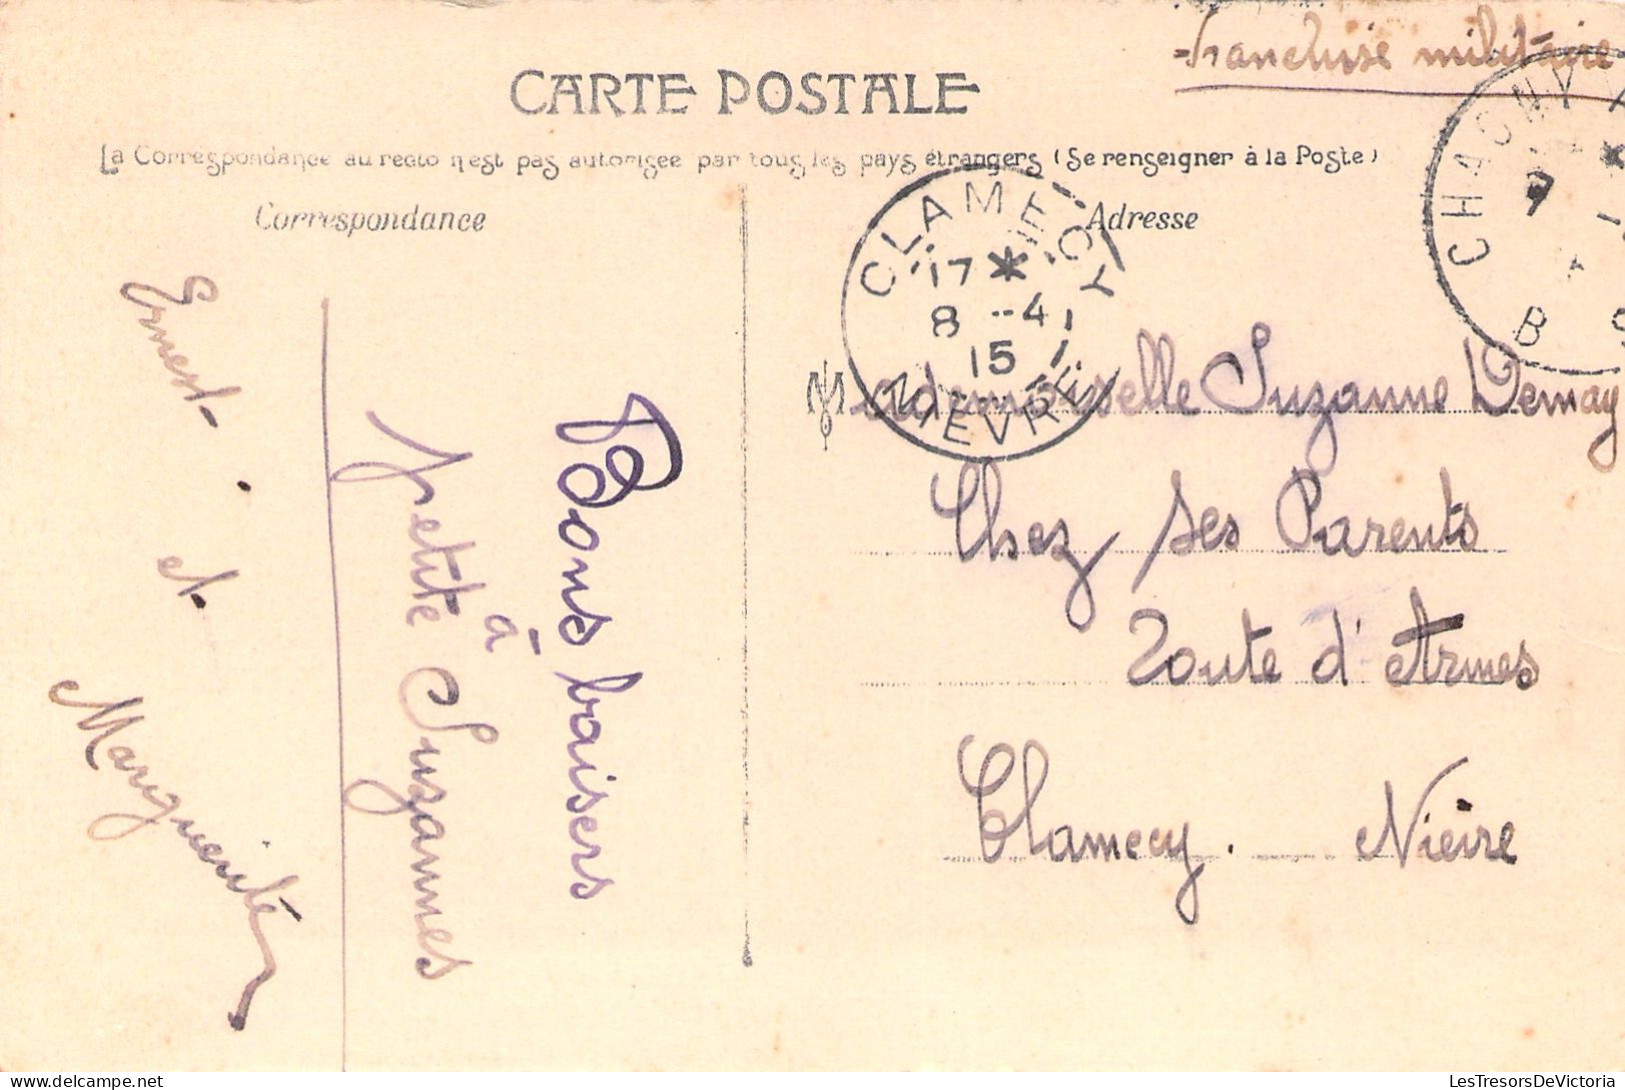 Franchise militaire
CARTE POSTALE
La Correspondance au recto n'est pas autorisée par tous les pays étrangers (Se renseigner à la Poste)
Correspondance
Adresse
CLAMECY
17 *
8 -4
15
NIEVRE
CHAGNY
7
*
B
Bons baisers
à
petite Suzannes
Ernest et
Marguerite
Mademoiselle Suzanne Demay
Chez ses Parents
Route d'Armes
Clamecy. Nièvre
LesTresorsDeVictoria